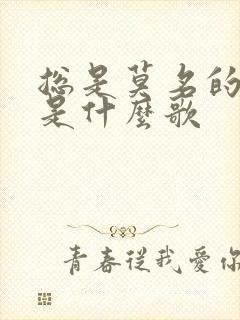 总是莫名的
是什麼歌
青春從我愛你